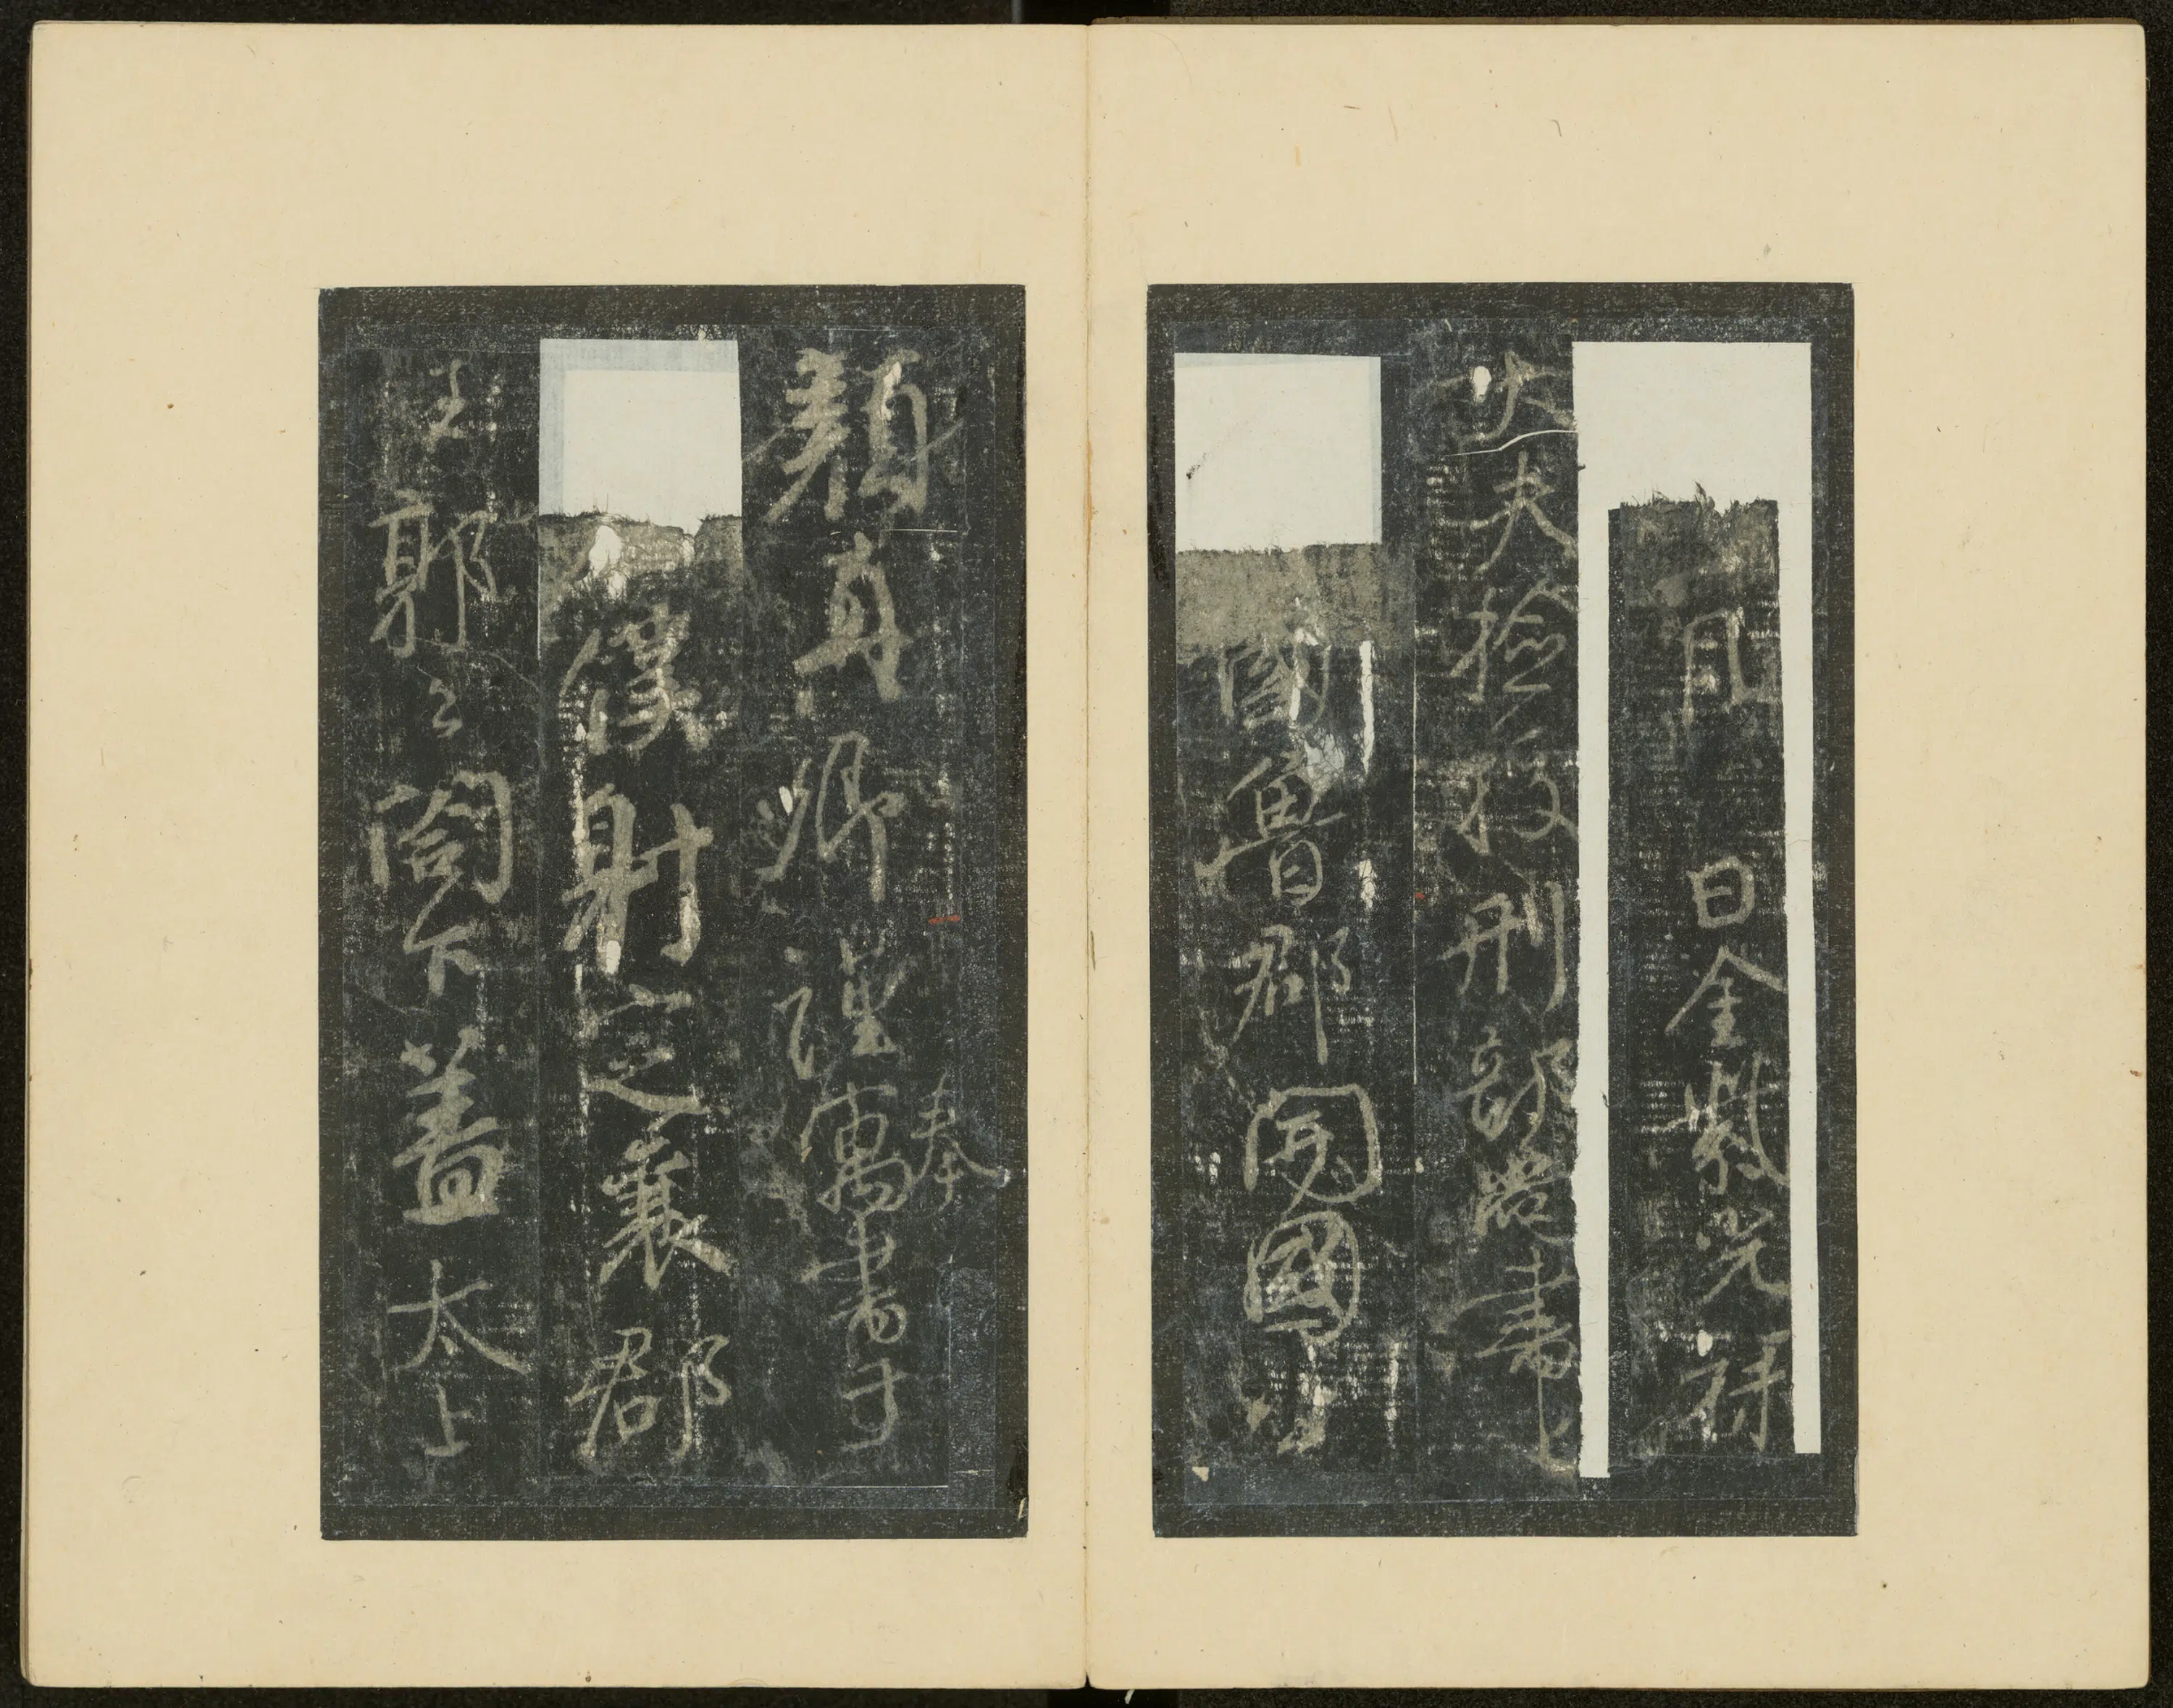 月日金紫光禄
大夫檢校刑部尚書上
國魯郡開國公
顏真卿謹奉寓書于
僕射定襄郡
王郭公閤下蓋太上